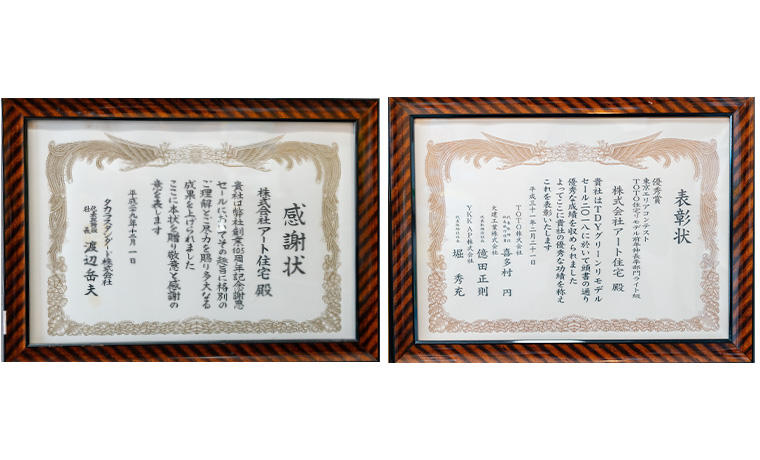 感謝状
株式会社アート住宅 殿
貴社は弊社創業105周年記念謝恩
セールに於いてその趣旨に格別の
ご理解とご尽力を賜り多大なる
成果を上げられました
ここに本状を贈り敬意と感謝の
意を表します
平成二十九年十二月一日
タカラスタンダード株式会社
代表取締役
社長 渡辺岳夫
表彰状
優秀賞
東京エリアコンテスト
TOTO住宅リモデル前年伸長率部門ライト級
株式会社アート住宅 殿
貴社はTDYグリーンリモデル
セール二〇一八に於いて頭書の通り
優秀な成績を収められました
よってここに貴社の優秀な功績を称え
これを表彰いたします
平成三十一年二月二十一日
TOTO株式会社
喜多村 円
大建工業株式会社
億田正則
YKK AP株式会社
堀 秀充